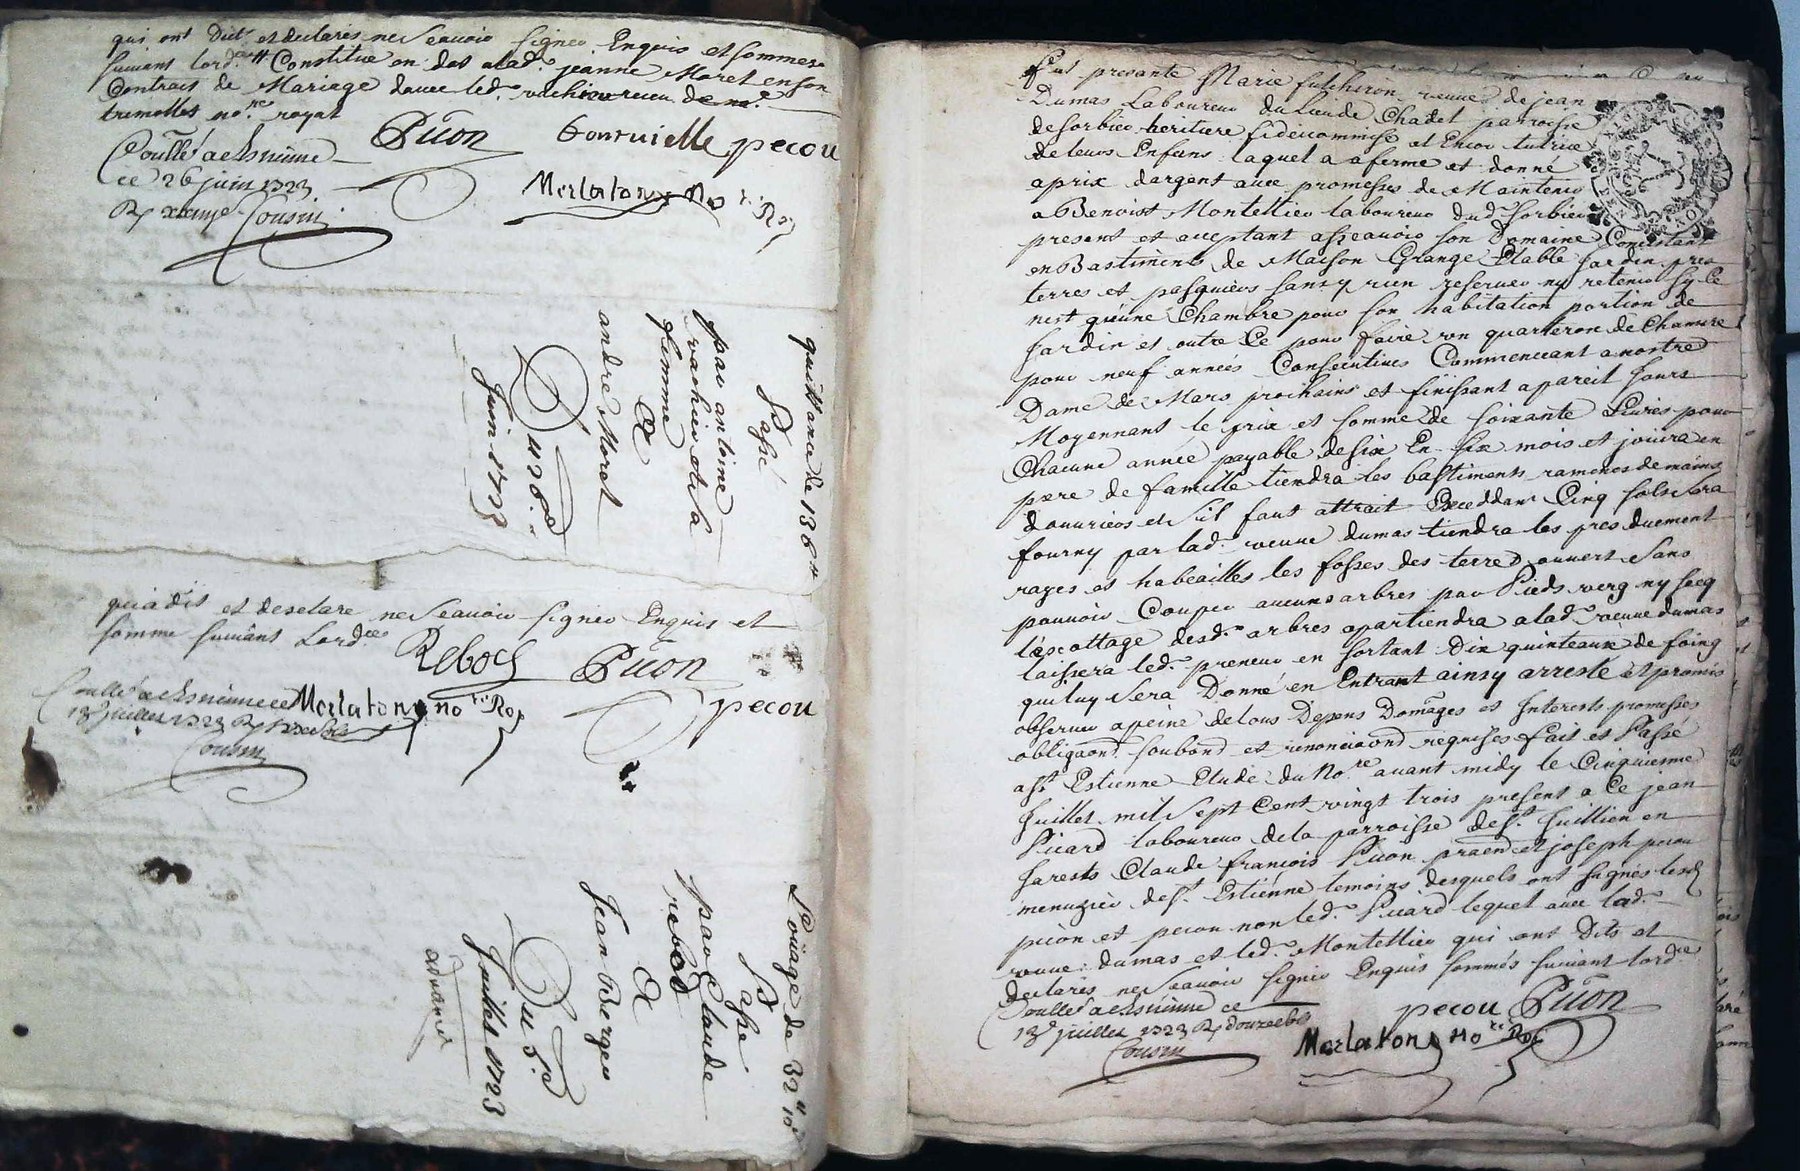 qui ont Dits et declarés ne Scavoir signer Enquis et sommés
suivant lord.ce Constitué en dot a lad. jeanne Moret en son
Contrait de Mariage davec led. vachier receu de me.
tremolles no.re royal
Puon Gontuielle pecou
Conllé a Estienne
ce 26 juin 1723
Merlaton No.re Ro
Cousin
quittance de 136 tt
Passé
par antoine
vachier et sa
femme
A
andre Moret
Du 20e
Juin 1723
qui a dit et desclare ne Scavoir signer Enquis et
sommé suivant Lord.ce
Rebod Puon
Conllé a Estienne ce Merlaton No.re Ro pecou
13e juillet 1723 R
Cousin
Loüage de 32 tt 10s
Passé
par Claude
rebod
A
Jean Berger
Du 5e
Juillet 1723
Fut presante Marie fulchiron veuve de jean
Dumas Laboureur du Lieu de Chadet parroisse
de Sorbier heritiere fideicommise et Encor tutrice
de leurs Enfans laquel a aferme et donné
a prix dargent avec promesses de Maintenir
a Benoist Montellier laboureur dud. Sorbier
present et acceptant asscavoir son Domaine Consistant
en Bastiments de Maison Grange Etable Jardin pres
terres et pasquiers sans y rien reserver ny retenir sy Ce
nest qüune Chambre pour son habitation portion de
Jardin et outre Ce pour faire un quarteron de Chanvre
pour neuf années Consecutives Commencant a nostre
Dame de Mars prochains et finissant a pareil Jours
Moyennant le prix et somme de soixante Livres pour
Chacune année payable de six En six mois et jouira en
pere de famille tiendra les bastiments ramenés de mains
douvriers et sil faut attrait Exceddant Cinq sols sera
fourny par lad. veuve dumas tiendra les pres duement
razes et habeailles les fosses des terres ouvert Sans
pouvoir Couper aucuns arbres par Pieds verg ny secq
lescottage desd. arbres apartiendra a lad. veuve dumas
laissera led. preneur en sortant Dix quinteaux de foing
qui luy sera Donné en Entrant ainsy arresté et promis
observer a peine de tous Depens Domages et Interests promesses
obligaons soubmd et renonciaons requises fait et Passé
a St. Estienne Etude du No.re avant midy le Cinquiesme
Juillet mil Sept Cent vingt trois present a Ce jean
Picard laboureur de la parroisse de St. Jullien en
Jarests Claude françois Puon praen et joseph pecou
menuzier de St. Estienne temoins desquels ont signés lesd
püon et pecou non led. Picard lequel avec lad.
veuve dumas et led. Montellier qui ont Dits et
declarés ne Scavoir signer Enquis sommés suivant lord.ce
Conllé a Estienne ce pecou Puon
13e juillet 1723 R douze sols
Merlaton No.re Ro
Cousin